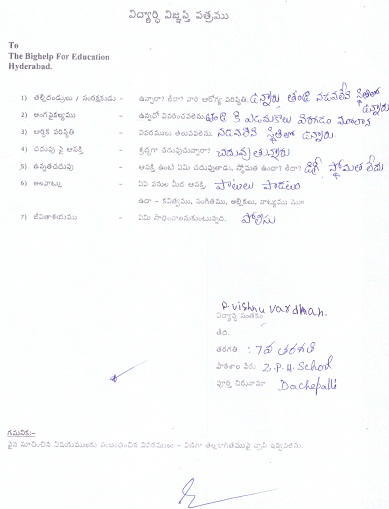 విద్యార్థి విజ్ఞప్తి పత్రము
To
The Bighelp For Education
Hyderabad.
1) తల్లిదండ్రులు / సంరక్షకుడు - ఉన్నారా? లేదా? వారి ఆరోగ్య పరిస్థితి. ఉన్నారు తండ్రి నడవలేని స్థితిలో ఉన్నారు
2) అంగవైకల్యము - ఉన్నచో వివరించవలెను. తండ్రి కి ఎడమకాలు విరగడం మూలాన
3) ఆర్థిక పరిస్థితి - వివరములు తెలుపవలెను. నడవలేని స్థితిలో ఉన్నారు
4) చదువు పై ఆసక్తి - శ్రద్ధగా చదువుచున్నారా? చదువుచున్నారు
5) ఉన్నతచదువు - ఆసక్తి ఉంటే ఏమి చదువుతాడు. స్తోమత ఉందా? లేదా? డిగ్రీ స్తోమత లేదు
6) అలవాట్లు - ఏఏ పనుల మీద ఆసక్తి. పాటలు పాడటం
ఉదా - కవిత్వము, సంగీతము, అల్లికలు, నాట్యము మొ॥
7) జీవితాశయము - ఏమి సాధించాలనుకుంటున్నది. పోలీసు
P. Vishnu Vardhan.
విద్యార్థి సంతకం
తేది.
తరగతి : 7వ తరగతి
పాఠశాల పేరు: Z.P.H. School
పూర్తి చిరునామా Dachepalli
గమనిక:-
పైన సూచించిన విషయములకు సంబంధించిన వివరములు - విడిగా తెల్లకాగితముపై వ్రాసి ఇవ్వవలెను.